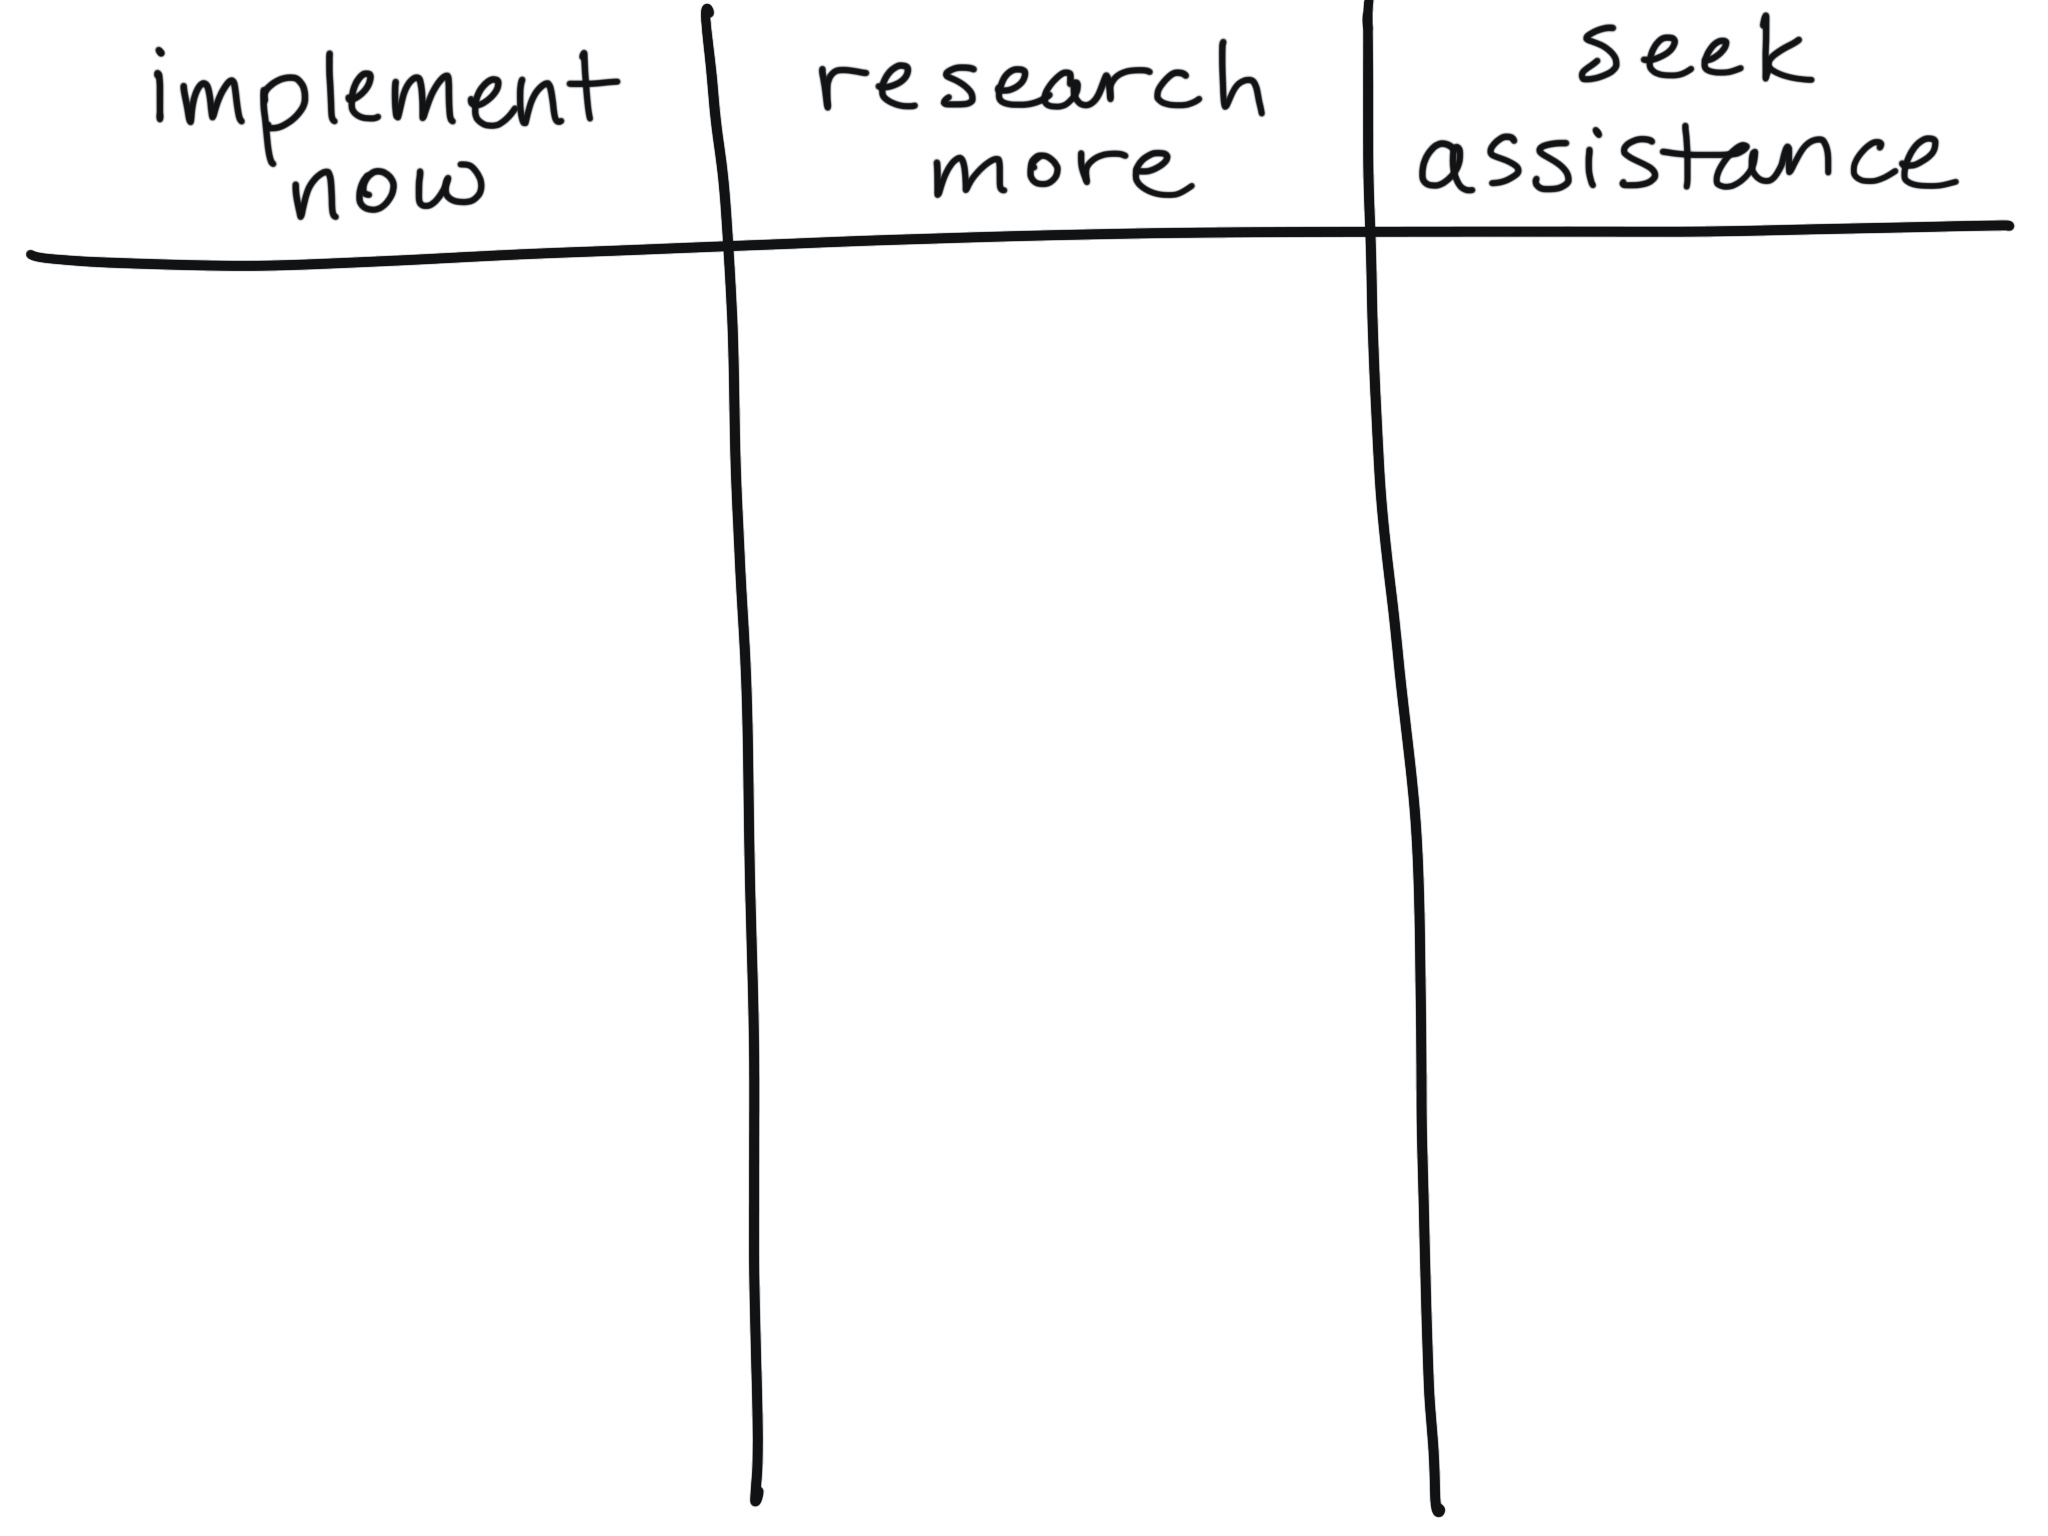 implement
now
research
more
seek
assistance